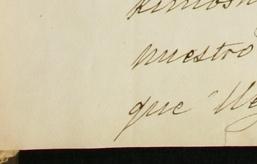 nuestro
que lle